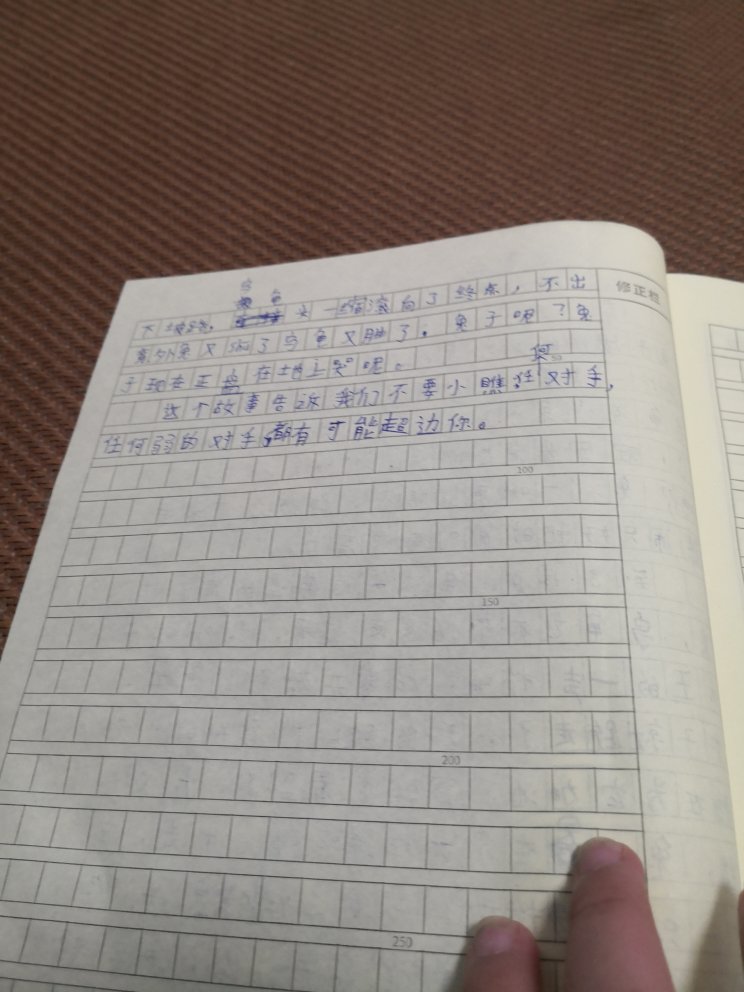 修正栏
下坡路。乌龟头一缩滚向了终点，不出
意外兔又输了乌龟又胜了。兔子呢？兔
子现在正在土地上哭呢。
50
这个故事告诉我们不要小瞧任何对手，
任何弱的对手，都有可能超过你。
100
150
200
250